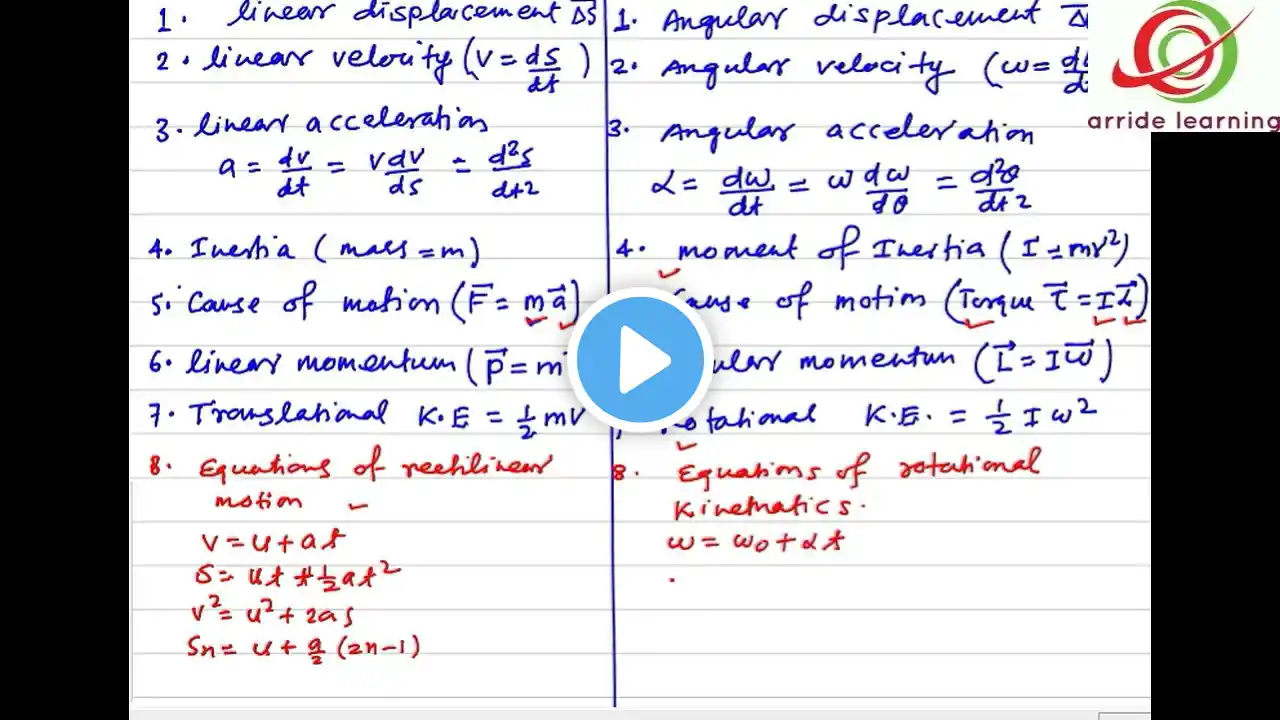 1. linear displacement ΔS
2. linear velocity (v = ds/dt)
3. linear acceleration
a = dv/dt = vdv/ds = d²s/dt2
4. Inertia (mass = m)
5. Cause of motion (F = ma)
6. linear momentum (P = m
7. Translational K.E = 1/2 mv
8. Equations of rectilinear
motion
v = u + at
S = ut + 1/2 at²
v² = u² + 2as
Sn = u + a/2 (2n-1)
1. Angular displacement Δ
2. Angular velocity (ω =
3. Angular acceleration
α = dω/dt = ω dω/dθ = d²θ/dt2
4. moment of Inertia (I = mr²)
of motion (Torque τ = Iα)
momentum (L = Iω)
K.E. = 1/2 I ω²
8. Equations of rotational
Kinematics.
ω = ω0 + αt
arride learning